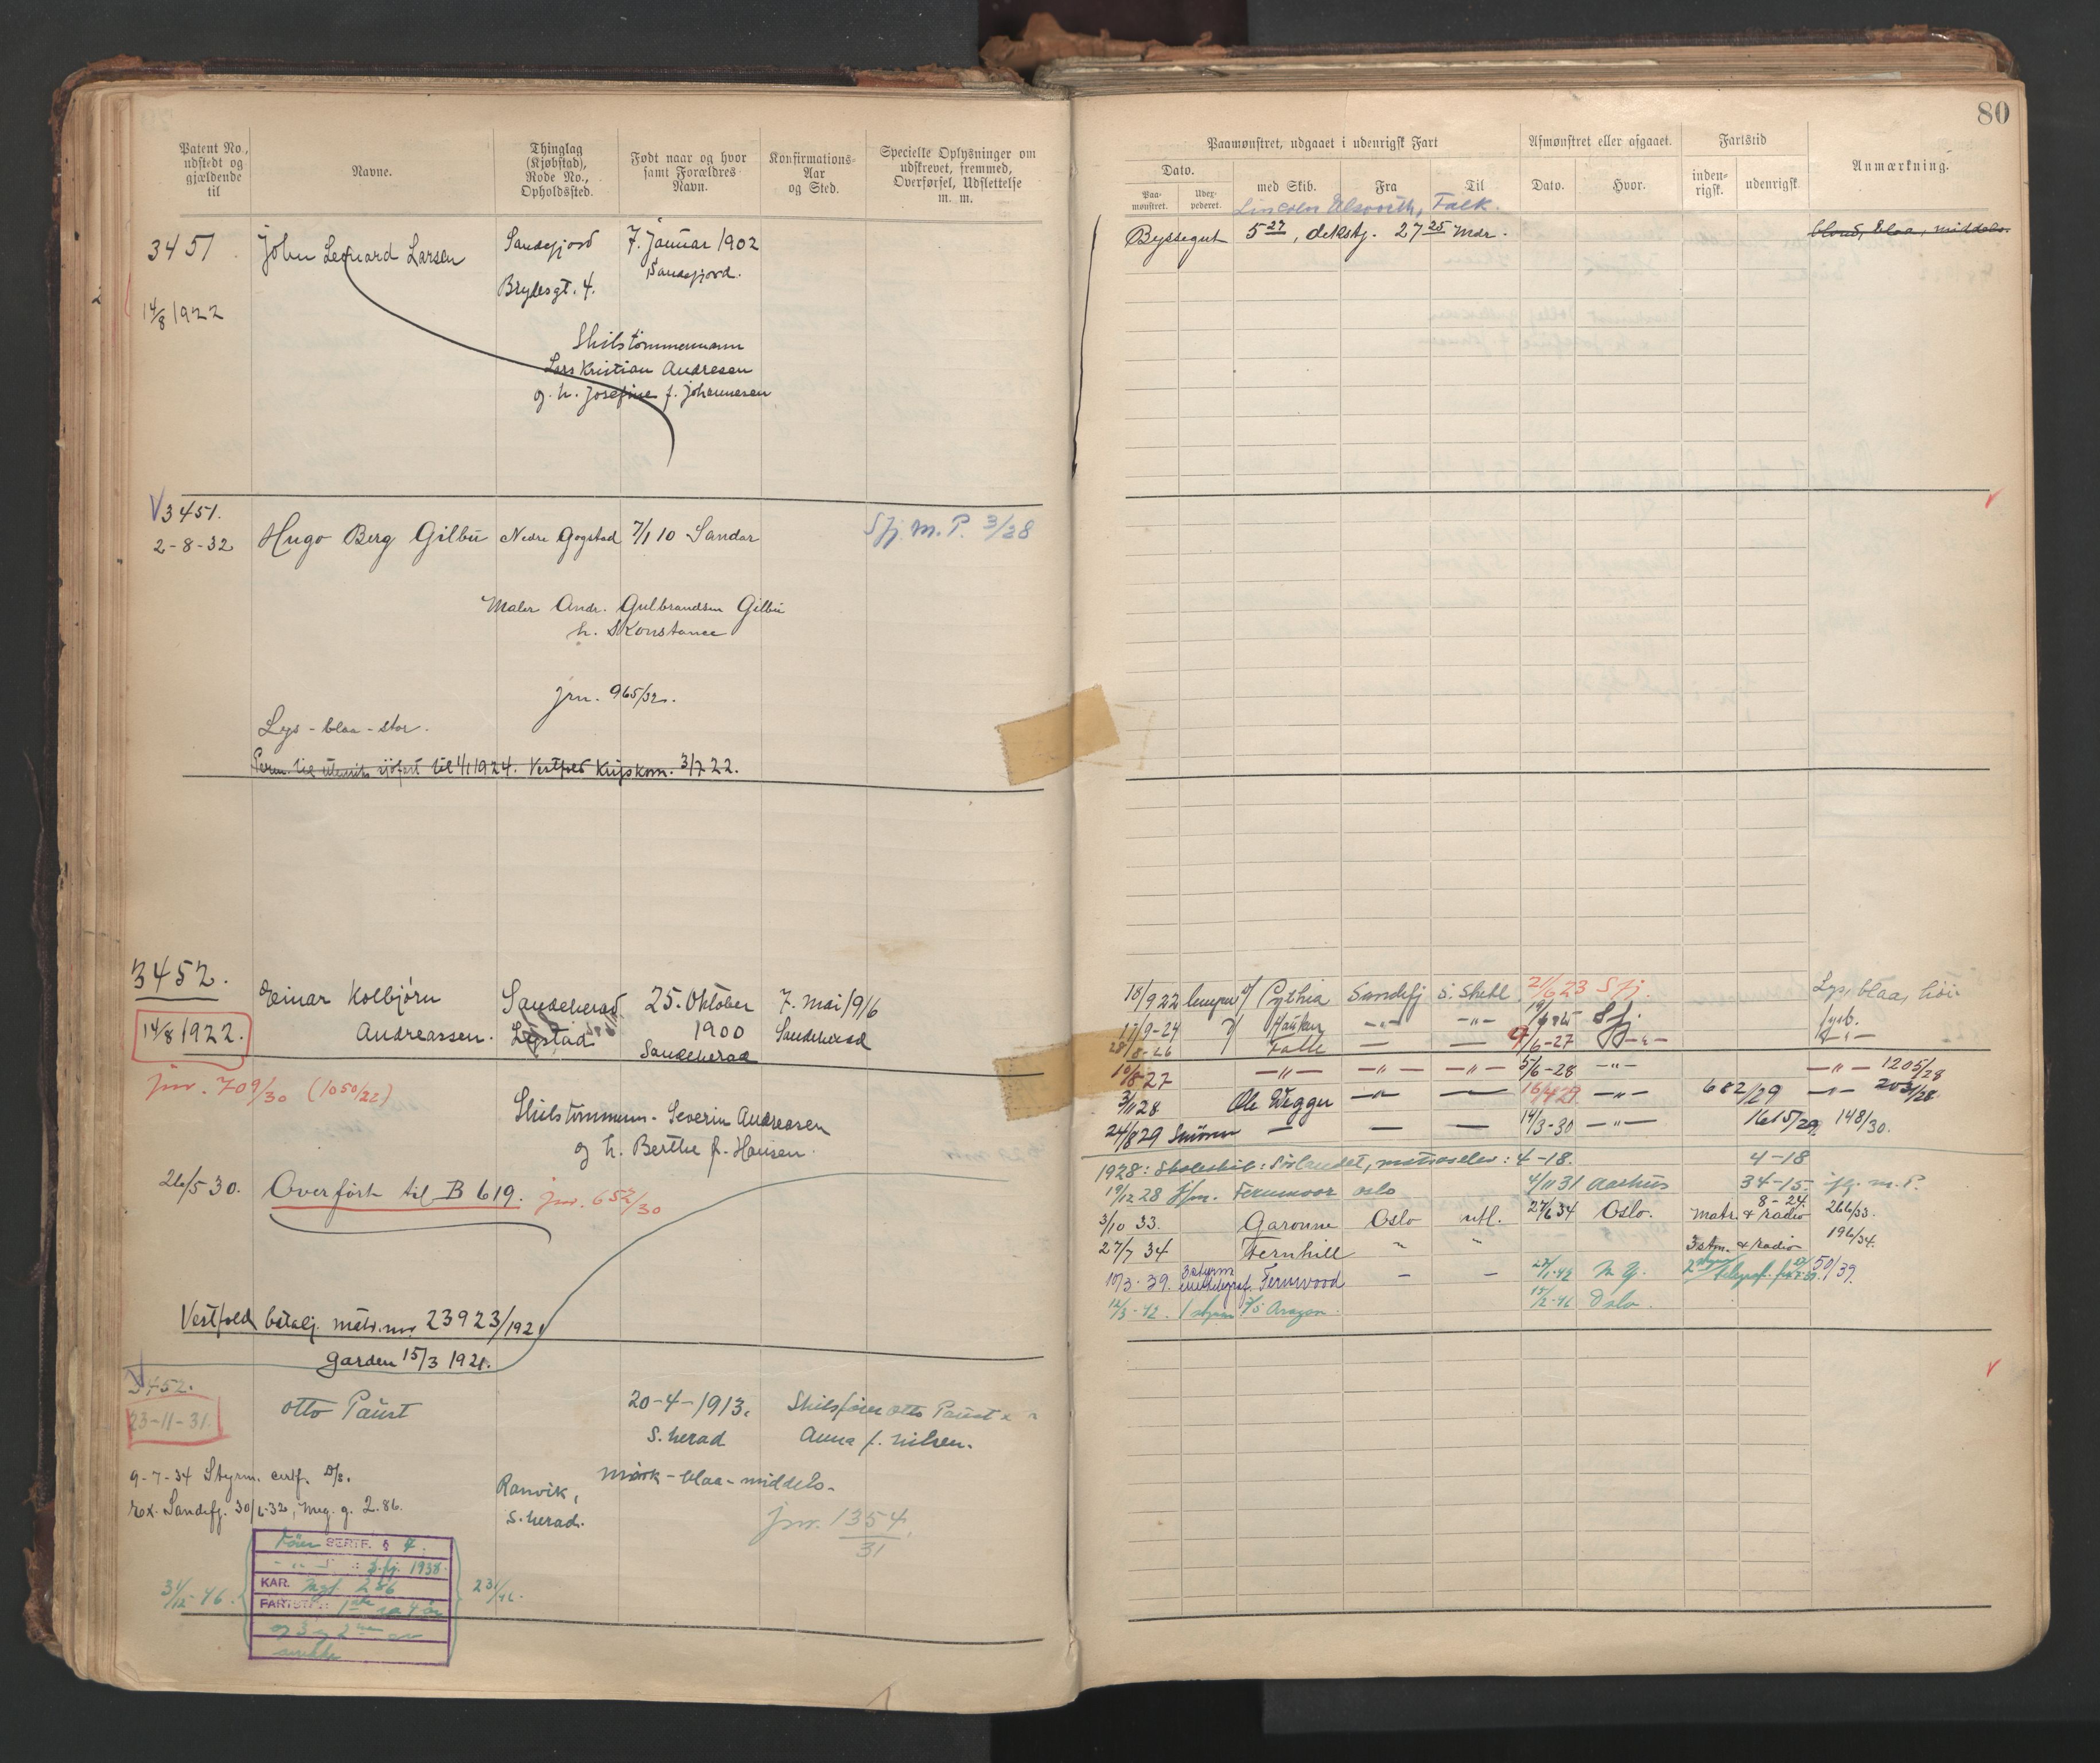 80
Patent No., udstedt og gjældende til
Navne.
Thinglag (Kjøbstad), Rode No., Opholdssted.
Født naar og hvor samt Forældres Navn.
Konfirmations-Aar og Sted.
Specielle Oplysninger om udskrevet, fremmed, Overførsel, Udslettelse m. m.
Paamønstret, udgaaet i udenrigsk Fart
Afmønstret eller afgaaet.
Fartstid
Anmærkning.
Dato.
med Skib.
Fra
Til
Dato.
Hvor.
inden-rigsk.
udenrigsk.
Paa-mønstret.
3451
John Leonard Larsen
Sandefjord
7. Januar 1902
Sandefjord.
Brydesgt. 4.
14/8 1922
Skibstømmermann
Lars Kristian Andresen
og h. Josefine f. Johannesen
Lincoln Elsworth, Falk.
Byssegut 5 27, deksg. 27 25 Mdr.
blond, blaa, middels.
3451.
2-8-32
Hugo Berg Gilbu
Nedre Gogstad
7/1 10 Sandar
Sfj. M. P. 3/28
Maler Andr. Gulbrandsen Gilbu
h. Konstance
jrn. 965/32.
Lys - blaa - stor.
Perm. til utenriks sjøfart til 1/1 1924. Vestfold Krigskom. 3/7 22.
3452.
14/8 1922.
Einar Kolbjørn
Andreassen.
Sandeherad
Lystad
25. Oktober
1900
Sandeherad
7. Mai 1916
Sandeherad
jnr. 709/30 (1050/22)
Skibstømmerm. Severin Andreasen
og h. Berthe f. Hansen.
26/5 30.
Overført til B 619. jnr. 652/30
Vestfold batalj. matr. nr. 23923/1921
Garden 15/3 1921.
18/9 22 Pythia Sandefj S. Shetl. 21/6 23 Sfj.
Lys, blaa, høi
17/9-24 Hauken -"- -"- Sfj.
28/8-26 Falk — — 9/6-27 -"-
10/8 27 -"- -"- -"- 5/6-28 -"- -"- 1205/28
3/11 28 Ole Wegger -"- — 16/4 29 -"- 682/29 -"- 2031/28
24/8 29 — — — 14/3-30 -"- 1615/29 148/30.
1928: Skoleskib: Sørlandet, matroselev: 4-18.
4-18
19/12 28 j/m. Fernmoor Oslo 4/11 31 Aarhus 34-15 jfg. m. P.
3/10 33. Garonne Oslo utl. 27/6 34 Oslo. Matr. & radio 8-24 266/33.
27/7 34 Fernhill " " 3 stm. & radio 196/34.
10/3-39. 3 styrm Fernwood — — N. Y. 50/39.
12/3-42. 1 styrm Aragon. Oslo.
3452.
23-11-31.
Otto Paust
20-4-1913.
S. herad
Skibsfører Otto Paust &
Anna f. Nilsen.
9-7-34 Styrm. certf. D/s.
ex. Sandefj. 30/6-32, meg. g. 2.86.
Ranvik,
S. herad.
mørk - blaa - middels.
jnr. 1354/31
SERTF. § 4.
Sfj. 1938.
KAR. Mgt. 2 86
FARTSTID
31/12-46.
231/46.